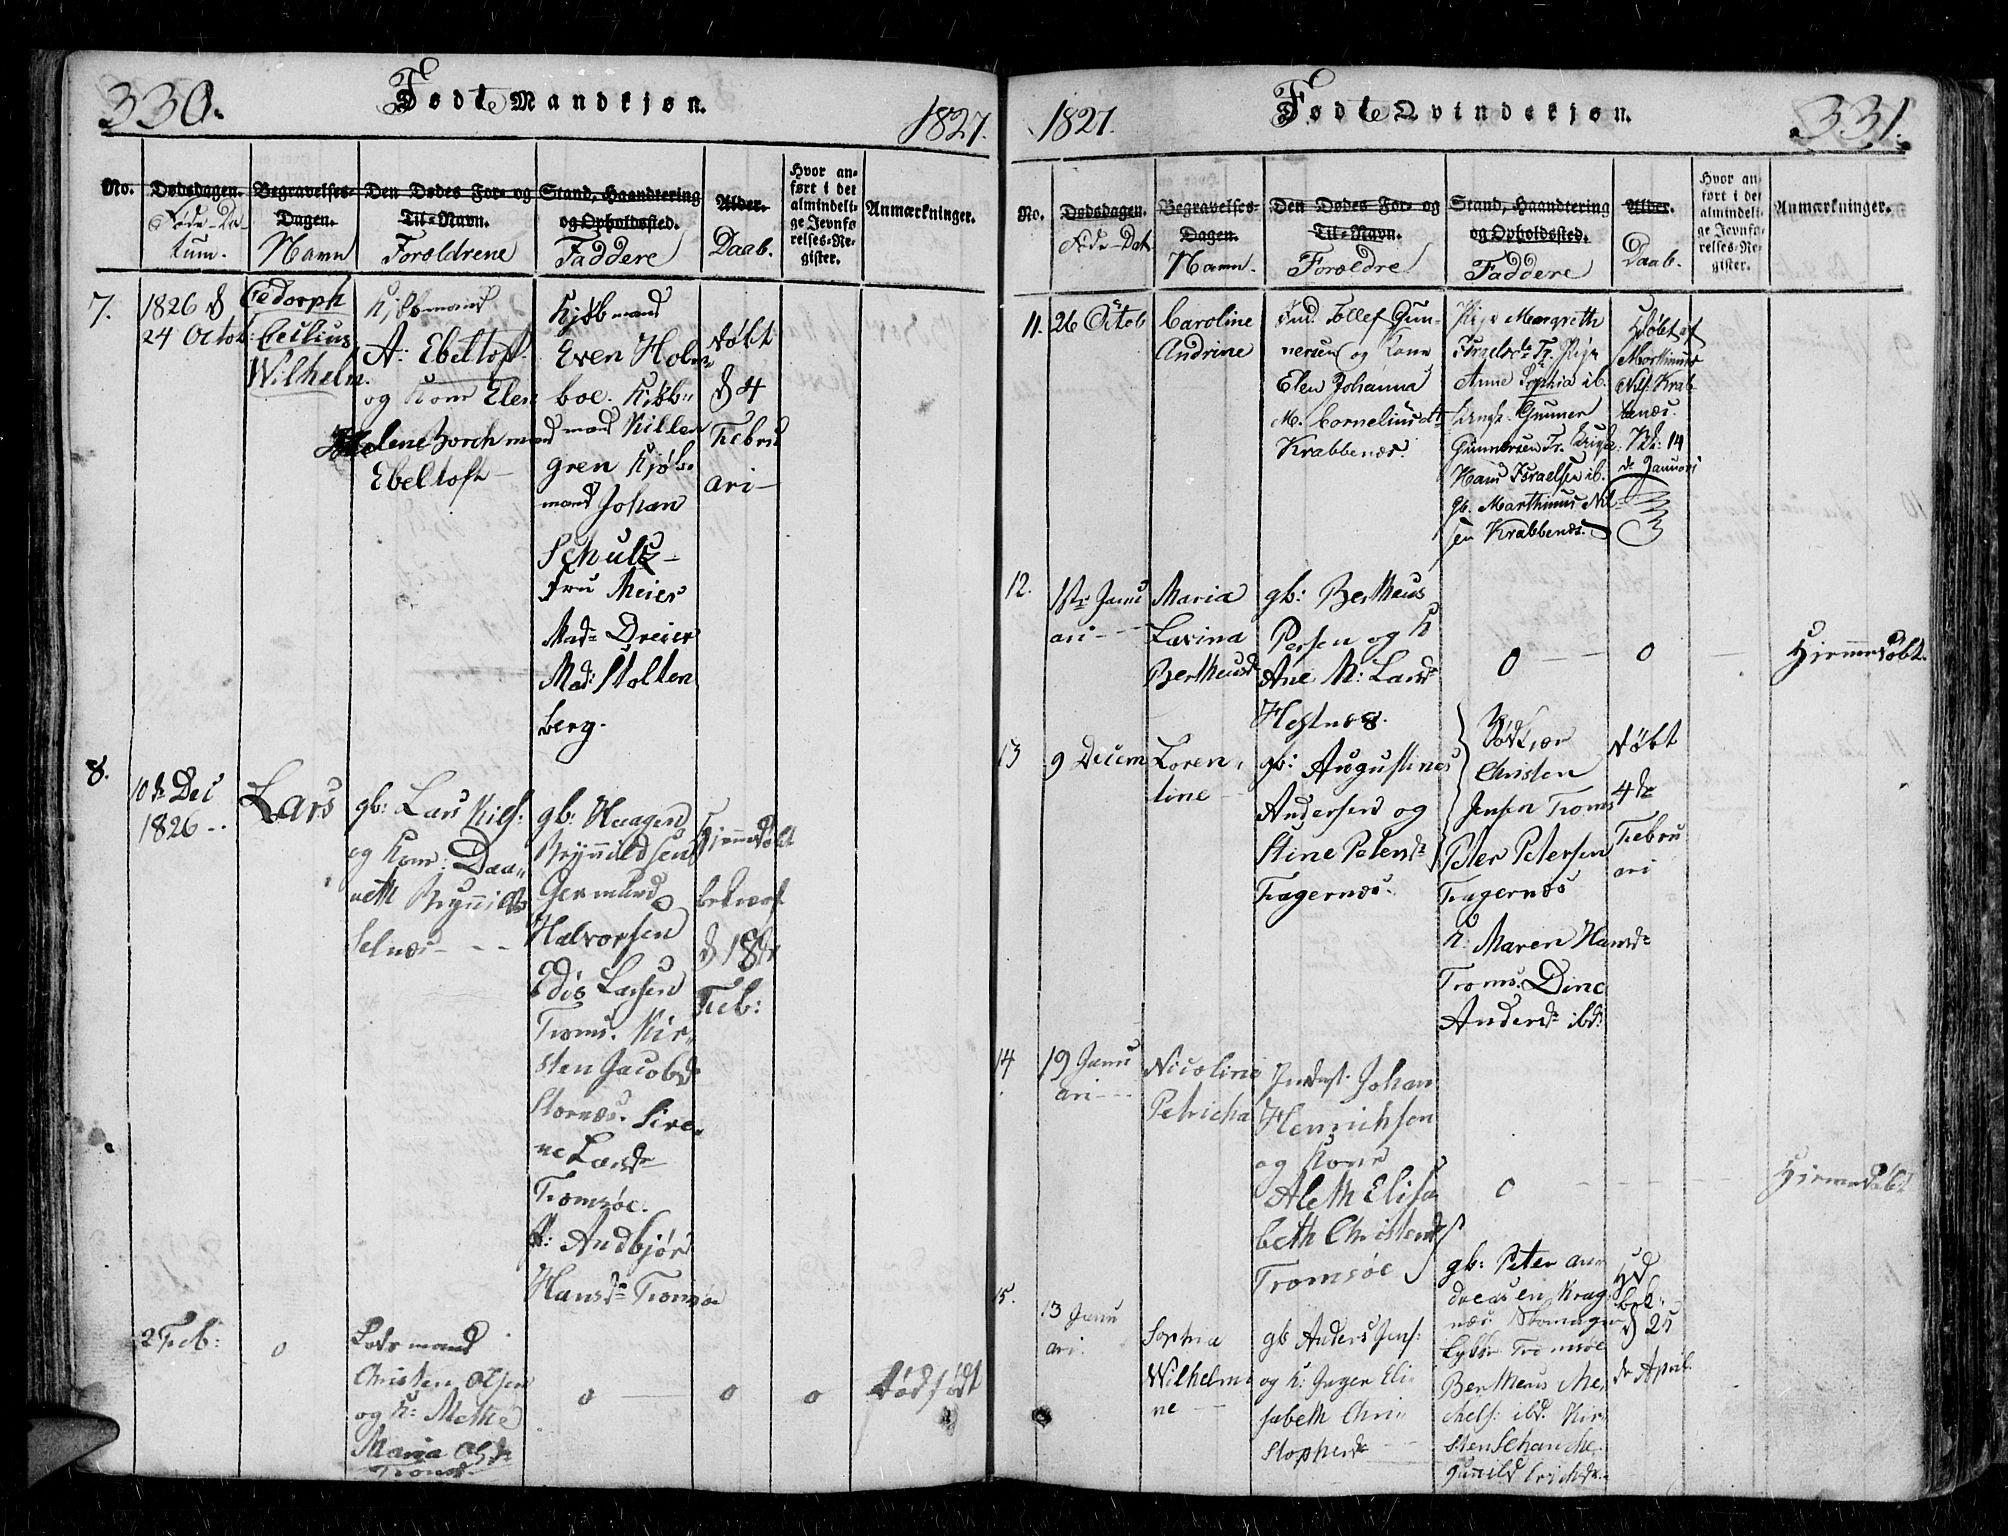 330.
Fødte Mandkjøn.
1827.
No.
Dødsdagen.
Føde-Da-
tum.
Begravelses-
Dagen.
Navn
Den Dødes For- og
Til-Navn.
Forældrene
Stand, Haandtering
og Opholdssted.
Faddere
Alder.
Daab.
Hvor an-
ført i det
almindeli-
ge Jevnfø
relses-Re-
gister.
Anmærkninger.
7.
1826 d
24 Octob:
Cedorph
Cecilius
Wilhelm.
Kjøbmand
A: Ebeltoft
og Kone Elen
Helene Borch
Ebeltoft
Kjøbmand
Even Holm
boe. Kjøb-
mand Killen
gren Kjøb-
mand Johan
Schultz
Fru Meier
Mad: Dreier
Mad: Stolten
berg.
døbt
d 4
Febru
ari
8.
10de Dec
1826
Lars
gb: Lars Nils:
og Kone: Daa-
neth Brynnilds
Selnæs
gb: Haagen
Brynnildsen
Germund
Halvorsen
Edis Larsen
Troms. Kir
sten Jacobsd
Stornæs. Sire
ne Larsd
Tromsøe.
P: Andbjør
Hansd Tromsøe
Hiemmedøbt
bekræft
d 18de
Feb:
2 Feb:
0
Lodsmand
Christen Olsen
og K: Methe
Maria Olsd
Troms
0
0
0
dødfødt
1827.
Fødte Qvindekjøn.
331.
No.
Dødsdagen.
Føde-Dat.
Begravelses-
Dagen.
Navn.
Den Dødes For- og
Til-Navn.
Forældre
Stand, Haandtering
og Opholdssted.
Faddere
Alder.
Daab.
Hvor an-
ført i det
almindeli-
ge Jevnfø-
relses-Re-
gister.
Anmærkninger.
11.
26 Octob
Caroline
Andrine
Ind. Tollef Gun-
nersen og Kone
Elen Johanna
M. Corneliusdt
Krabbenæs.
Pige Margreth
Israelsd Tr. Pige
Anne Sophia ib.
Ungk. Gunner
Gunnersen Tr.
Hans Israelsen ib.
gb. Marthinus Nil-
sen Krabbenæs.
Hdøbt af
Marthinus
Nils: Krab
benæs.
14
de Januari
12.
1ste Janu
ari
Maria
Lavina
Bertheusd
gb: Bertheus
Persen og K
Ane M: Larsd
Hestnæs.
0
0
Hiemmedøbt.
13
9 Decem
Loren
tine
gb: Augustinus
Andersen og
Stine Petersd
Fagernæs.
Christen
Jensen Troms
Peter Petersen
Fagernæs
K: Maren Hansd
Troms. Dine
Andersd ibd:
døbt
4de
Febru
ari
14
19 Janu
ari
Nicoline
Petricha
Indest. Johan
Henrichsen
og Kone
Aleth Elisa
beth Christensd
Tromsøe
0
Hiemmedøbt
15.
13 Janu
ari.
Sophia
Wilhelmi
ne
gb Anders Jens:
og K: Inger Eli
sabeth Chri
stophersd
gb: Peter An
dreasen Krag
næs Skomager
Lykke Tromsøe
Bertheus Mi
chels: ibd. Kir
sten Schanche
Gunild Erichsd.
Hd
bek:
d 25
de April